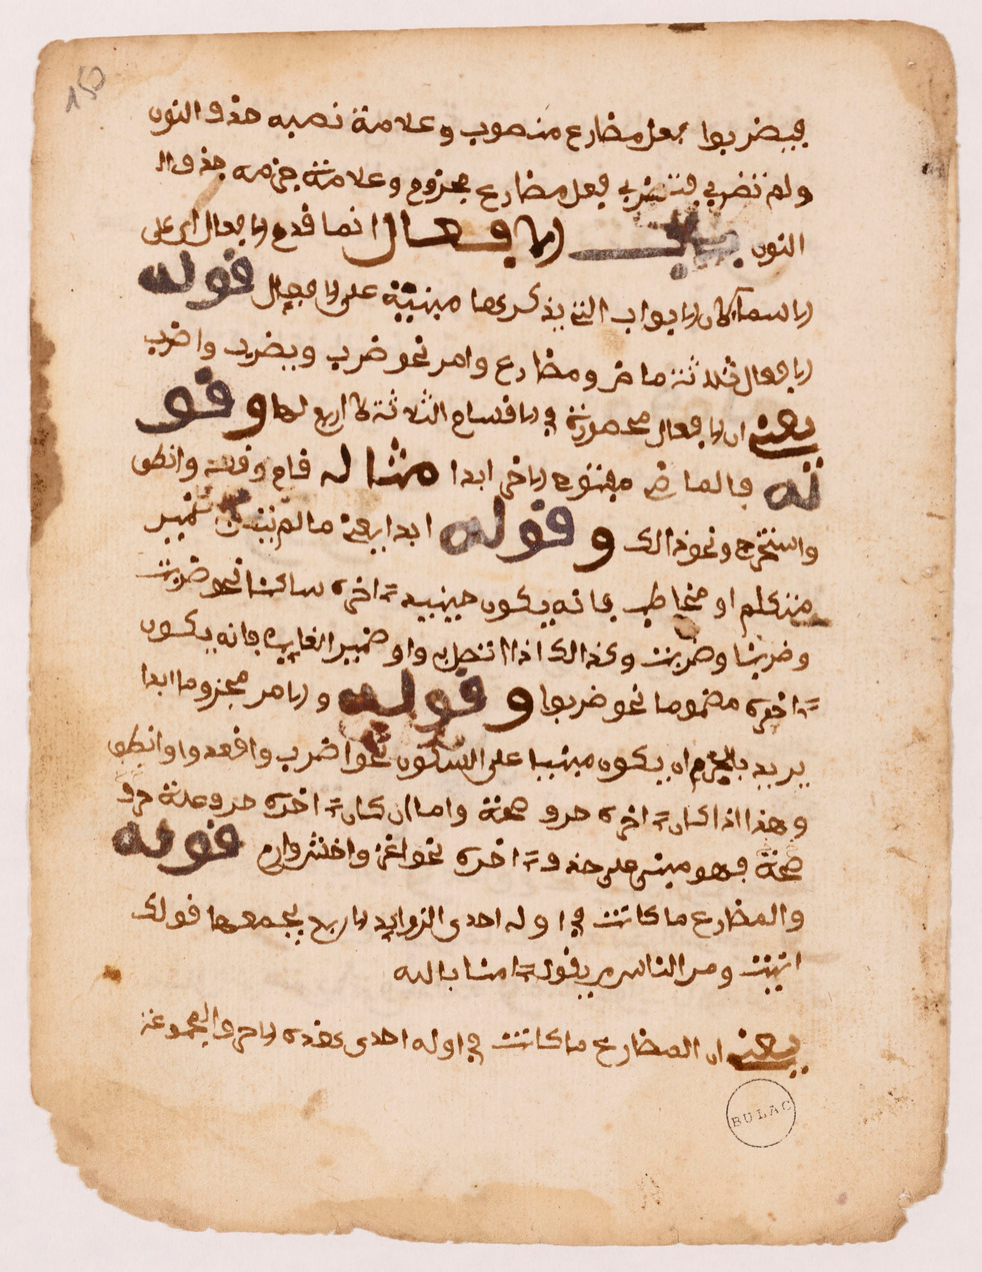 150
فيضربوا فعل مضارع منصوب وعلامة نصبه حذف النون
ولم تضربي فتضربي فعل مضارع مجزوم وعلامة جزمه حذف ال
النون باب الافعال انما قدم الافعال اي على
الاسما لان الابواب التي يذكرها مبنية على الافعال قوله
الافعال ثلاثة ماض ومضارع وامر نحو ضرب ويضرب واضرب
يعني ان الافعال محصورة في الاقسام الثلاثة لا اربع لها وقو
له فالماضي مفتوح الاخر ابدا مثاله قام وقعد وانطلق
واستخرج ونحو ذالك وقوله ابدا يعني ما لم يتصل ضمير
متكلم او مخاطب فانه يكون حينيذ اخره ساكنا نحو ضربت
وضربنا وضربت وكذالك اذا اتصل به واو ضمير الغايب فانه يكون
اخره مضموما نحو ضربوا وقوله والامر مجزوم ابدا
يريد بالجزم ان يكون مبنيا على السكون نحو اضرب واقعد وانطلق
وهذا اذا كان اخره حرف صحة واما ان كان اخره حرف علة
صحة فهو مبني على حذف اخره نحو اغز واخش وارم قوله
والمضارع ما كانت في اوله احدى الزوايد الاربع يجمعها قولك
انيت ومن الناس من يقول امنا بالله
يعني ان المضارع ما كانت في اوله احدى هذه الاحرف المجموعة
BULAC